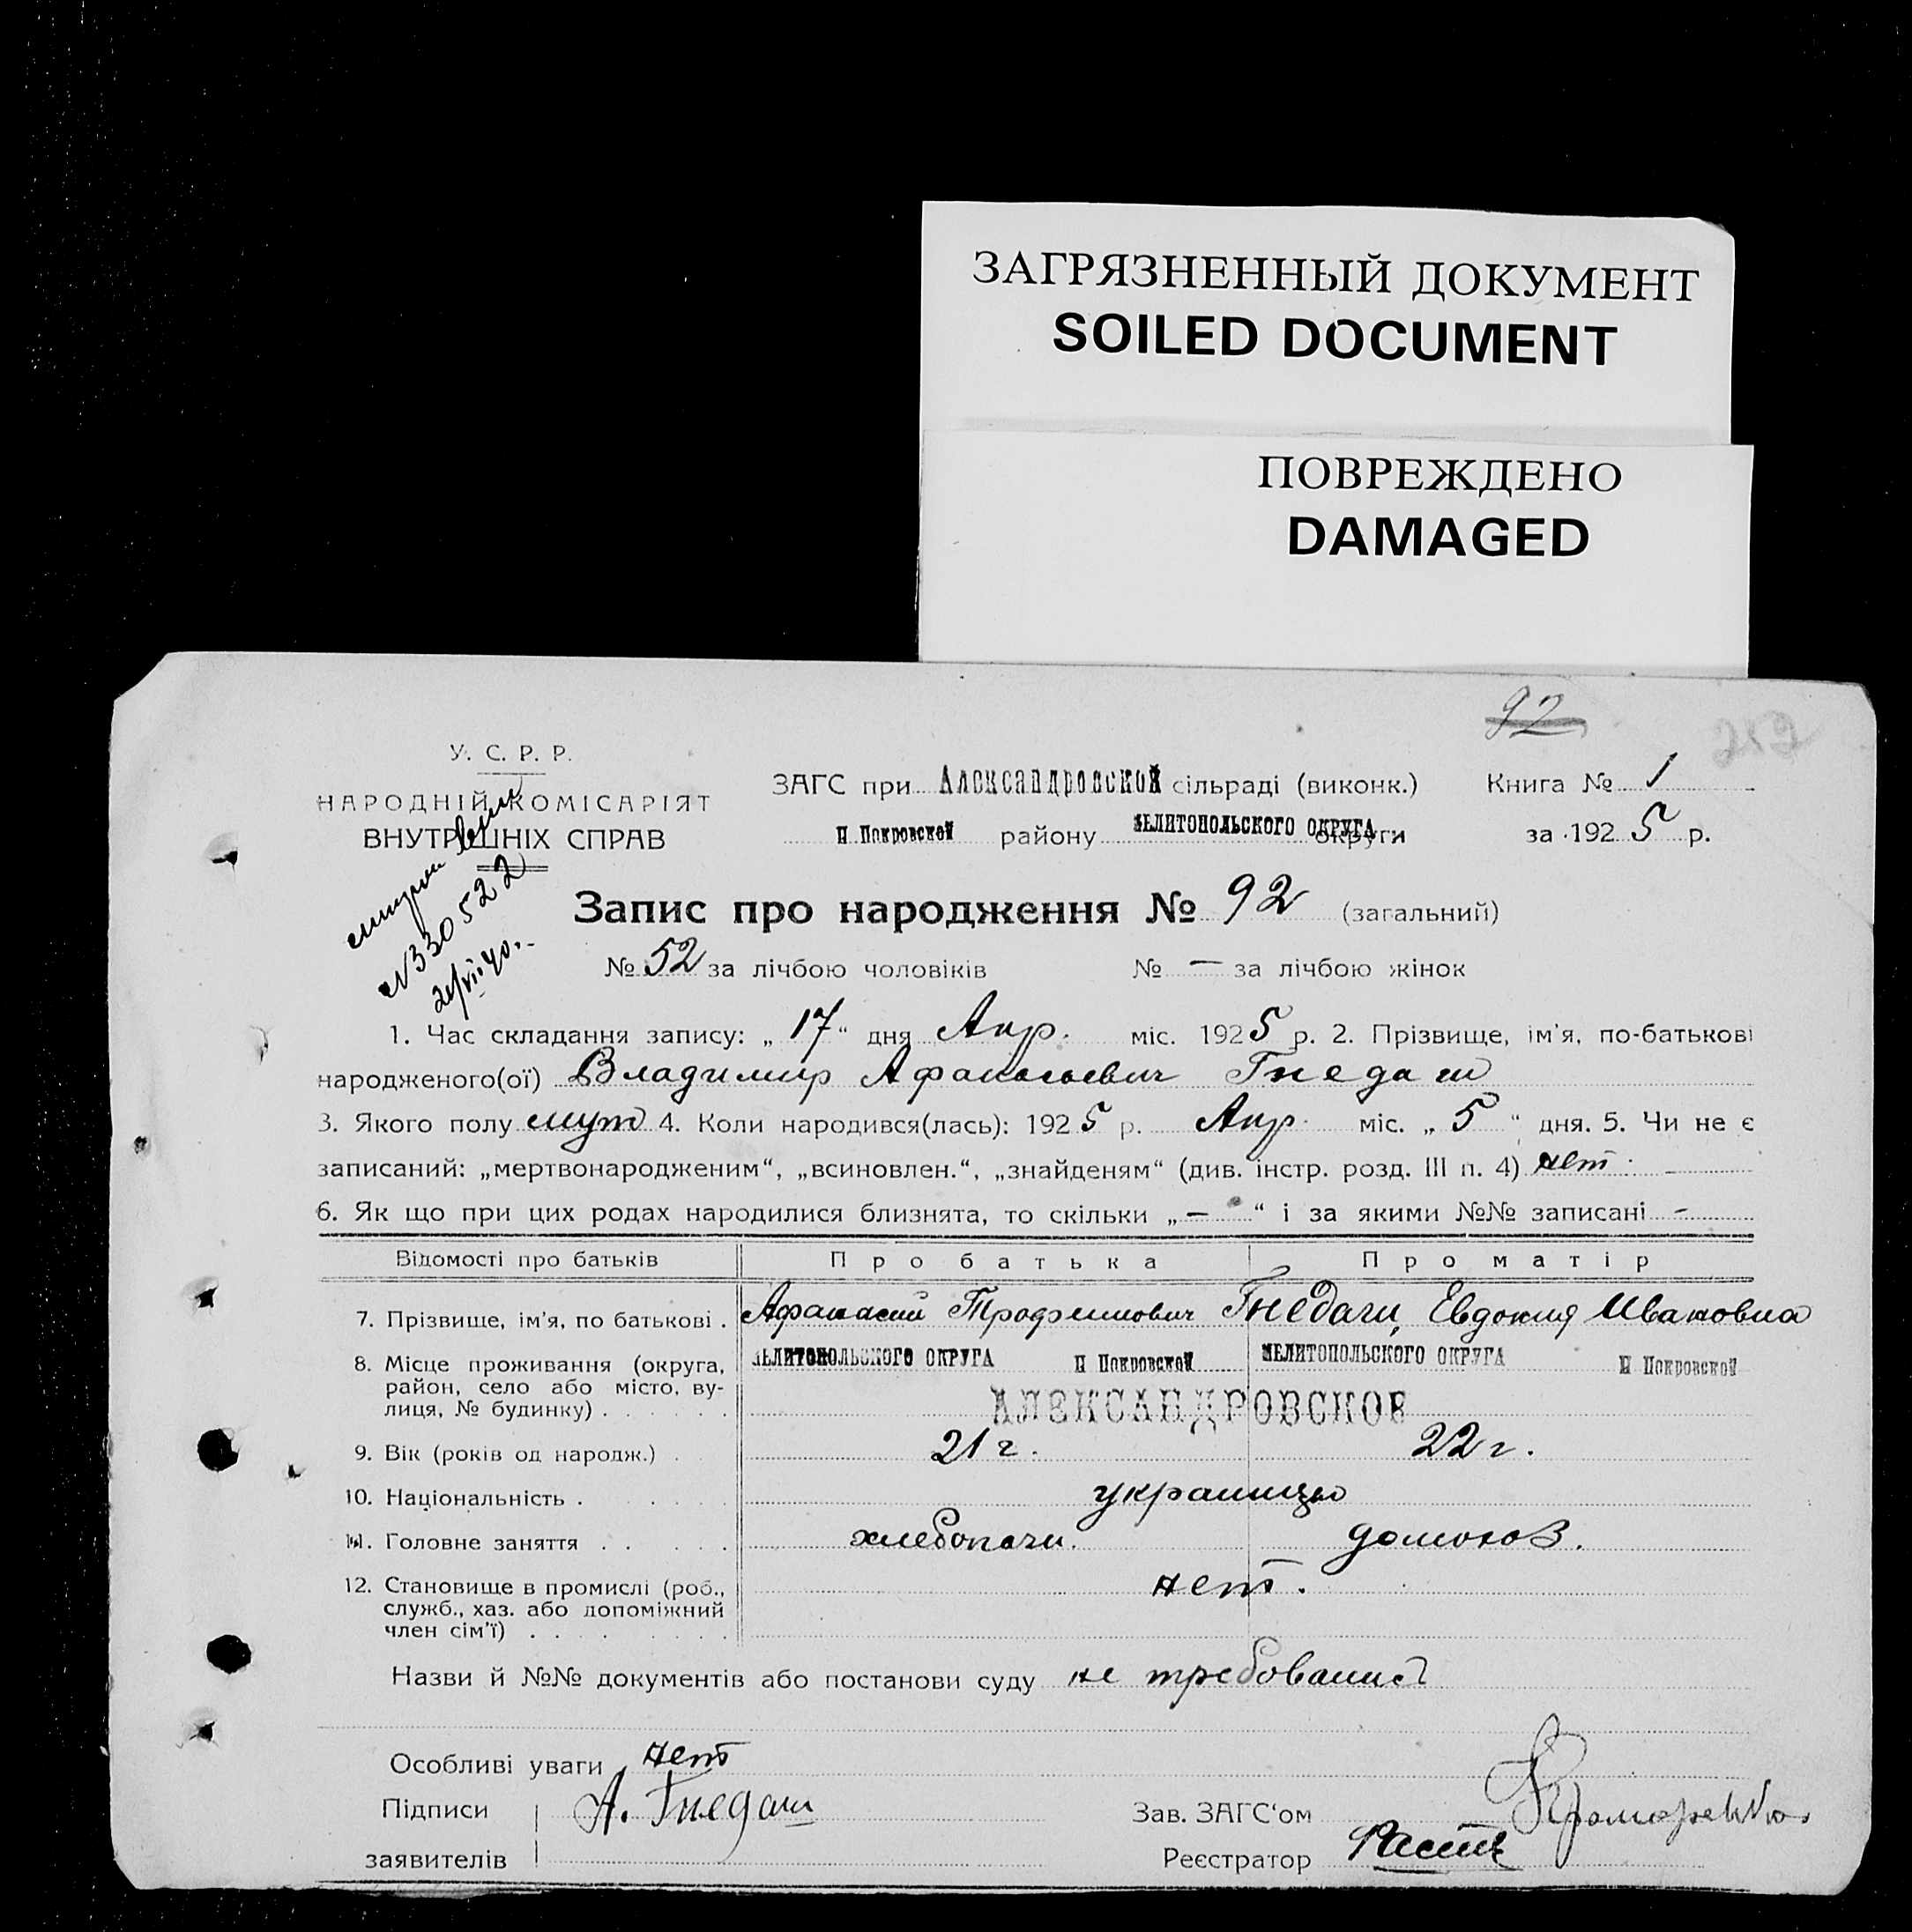 ЗАГРЯЗНЕННЫЙ ДОКУМЕНТ
SOILED DOCUMENT
ПОВРЕЖДЕНО
DAMAGED
92
У. С. Р. Р.
НАРОДНІЙ КОМІСАРІЯТ
ВНУТРІШНІХ СПРАВ
ЗАГС при Александровской сільраді (виконк.) Книга № 1
П Покровской району МЕЛИТОПОЛЬСКОГО ОКРУГА округи за 1925 р.
№330522
Запис про народження № 92 (загальний)
№ 52 за лічбою чоловіків № — за лічбою жінок
1. Час складання запису: „17“ дня Апр. міс. 1925 р. 2. Прізвище, ім'я, по-батькові
народженого(ої) Владимир Афанасьевич Гнедаш
3. Якого полу муж 4. Коли народився(лась): 1925 р. Апр. міс. „5“ дня. 5. Чи не є
записаний: „мертвонародженим“, „всиновлен.“, „знайденям“ (див. інстр. розд. III п. 4) нет.
6. Як що при цих родах народилися близнята, то скільки „—“ і за якими №№ записані -
Відомості про батьків Про батька Про матір
7. Прізвище, ім'я, по батькові . Афанасий Трофимович Гнедаш, Евдокия Ивановна
8. Місце проживання (округа, МЕЛИТОПОЛЬСКОГО ОКРУГА П Покровской МЕЛИТОПОЛЬСКОГО ОКРУГА П Покровской
район, село або місто, ву-
лиця, № будинку) . . . . . . АЛЕКСАНДРОВСКОЕ
9. Вік (років од народж.) . 21 г. 22 г.
10. Національність . . . . . украинцы
11. Головне заняття . . . . . хлебопаш. домохоз.
12. Становище в промислі (роб., нет.
служб., хаз. або допоміжний
член сім'ї) . . . . . . . .
Назви й №№ документів або постанови суду не требовались
Особливі уваги нет
Підписи А. Гнедаш Зав. ЗАГС'ом
заявителів Реєстратор